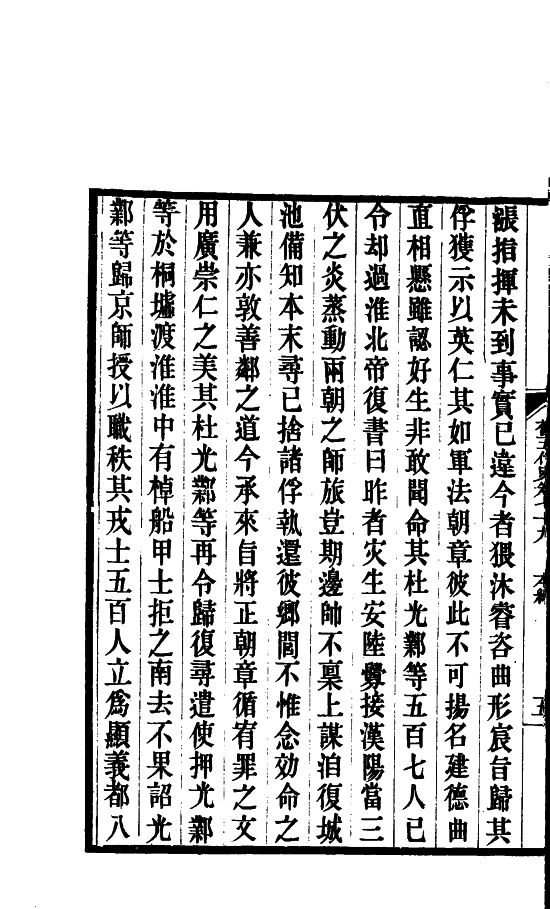 張指揮未到事實已違今者猥沐睿咨曲形宸旨歸其
俘獲示以英仁其如軍法朝章彼此不可揚名建德曲
直相懸雖認好生非敢聞命其杜光鄴等五百七人已
令却過淮北帝復書曰昨者灾生安陸釁接漢陽當三
伏之炎蒸動兩朝之師旅豈期邊帥不稟上謀洎復城
池備知本末尋已捨諸俘執還彼鄉閭不惟念効命之
人兼亦敦善鄰之道今承來旨將正朝章循宥罪之文
用廣崇仁之美其杜光鄴等再令歸復尋遣使押光鄴
等於桐墟渡淮淮中有棹船甲士拒之南去不果詔光
鄴等歸京師授以職秩其戎士五百人立爲顯義都八